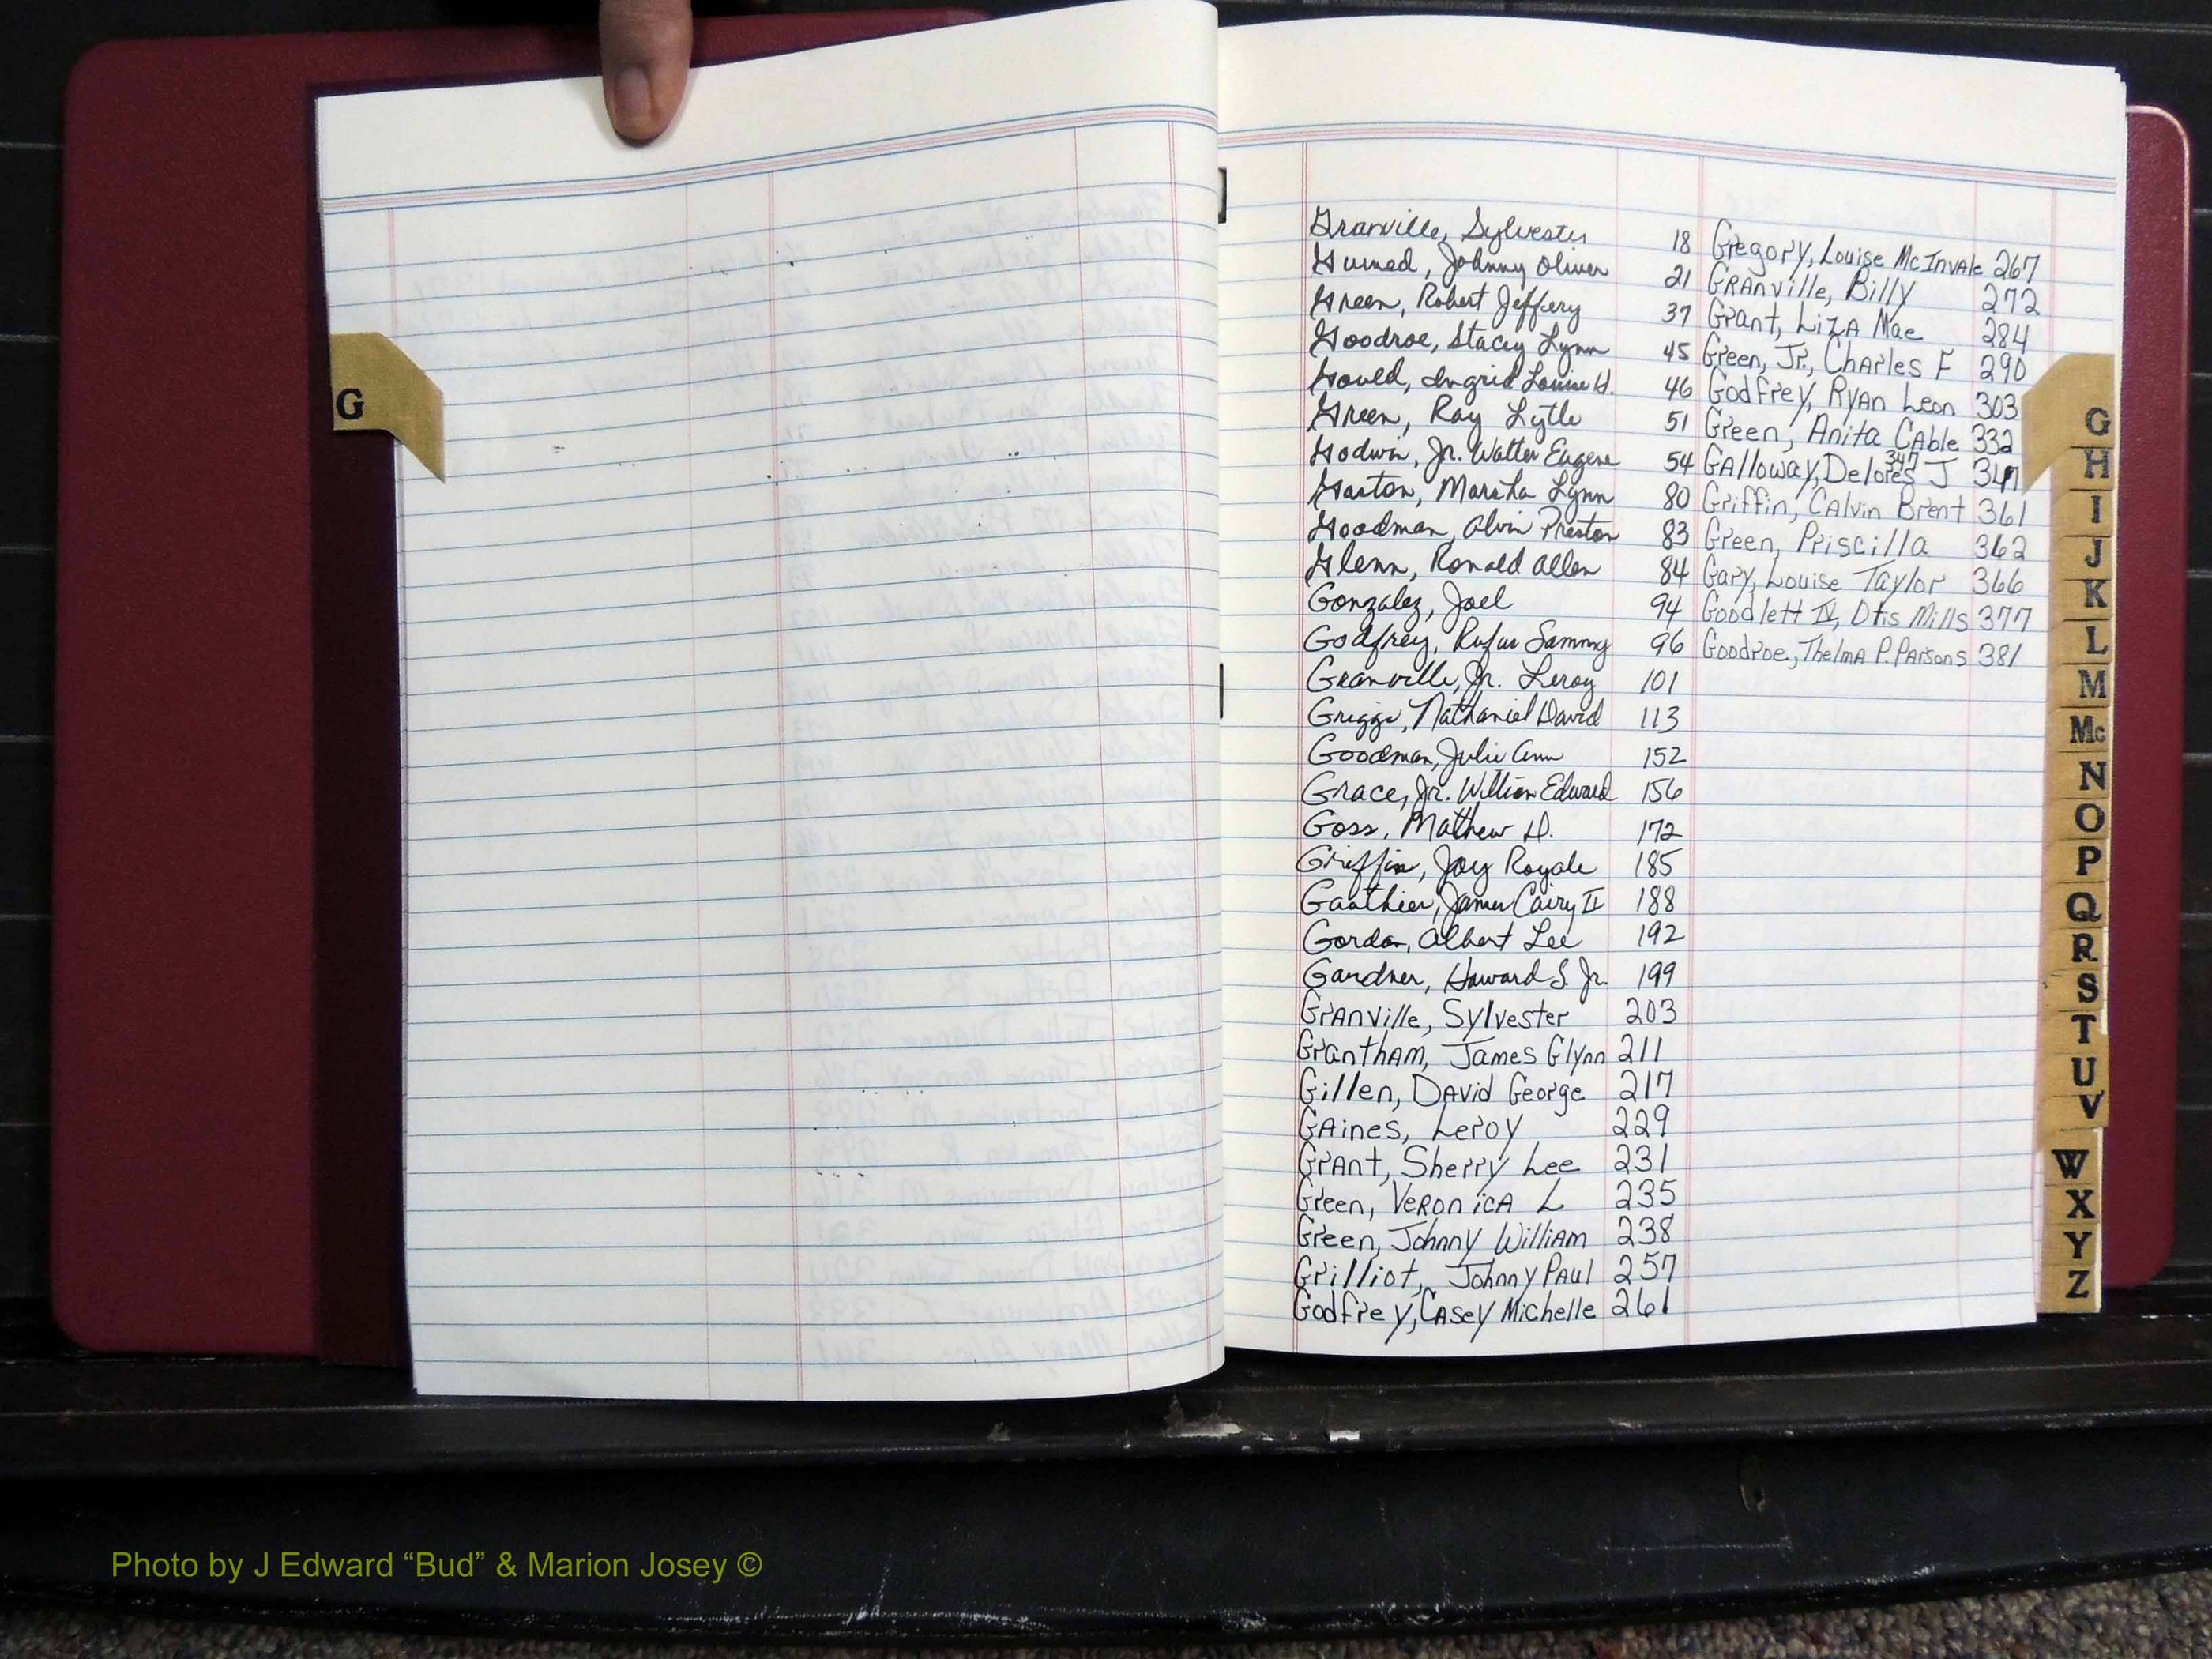 G
Granville, Sylvester 18
Green, Robert Jeffery 37
Goodroe, Stacey Lynn 45
Gould, Ingrid Louise H. 46
Green, Ray Lytle 51
Godwin, Jr. Walter Eugene 54
Gaston, Marsha Lynn 80
Goodman, Alvin Preston 83
Glenn, Ronald Allen 84
Gonzalez, Joel 94
Godfrey, Rufus Sammy 96
Granville, Jr. Leroy 101
Griggs, Nathaniel David 113
Goodman, Julie Ann 152
Grace, Jr. William Edward 156
Goss, Mathew H. 172
Griffin, Joy Royale 185
Gauthier, James Cairy II 188
Gordon, Albert Lee 192
Gardner, Howard S. Jr. 199
Granville, Sylvester 203
Grantham, James Glynn 211
Gillen, David George 217
Gaines, Leroy 229
Grant, Sherry Lee 231
Green, Veronica L 235
Green, Johnny William 238
Grilliot, Johnny Paul 257
Godfrey, Casey Michelle 261
Gregory, Louise McInvale 267
Granville, Billy 272
Grant, Liza Mae 284
Green, Jr., Charles F 290
Godfrey, Ryan Leon 303
Green, Anita Cable 332
347
Galloway, Delores J
Griffin, Calvin Brent 361
Green, Priscilla 362
Gary, Louise Taylor 366
Goodlett IV, Otis Mills 377
Goodroe, Thelma P. Parsons 381
G
H
I
J
K
L
M
Mc
N
O
P
Q
R
S
T
U
V
W
X
Y
Z
Photo by J Edward “Bud” & Marion Josey ©